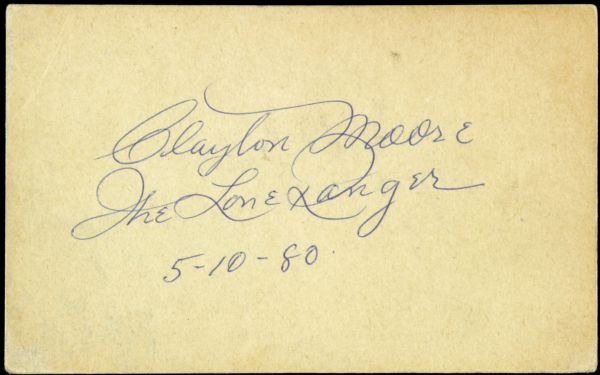 Clayton Moore
The Lone Ranger
5-10-80